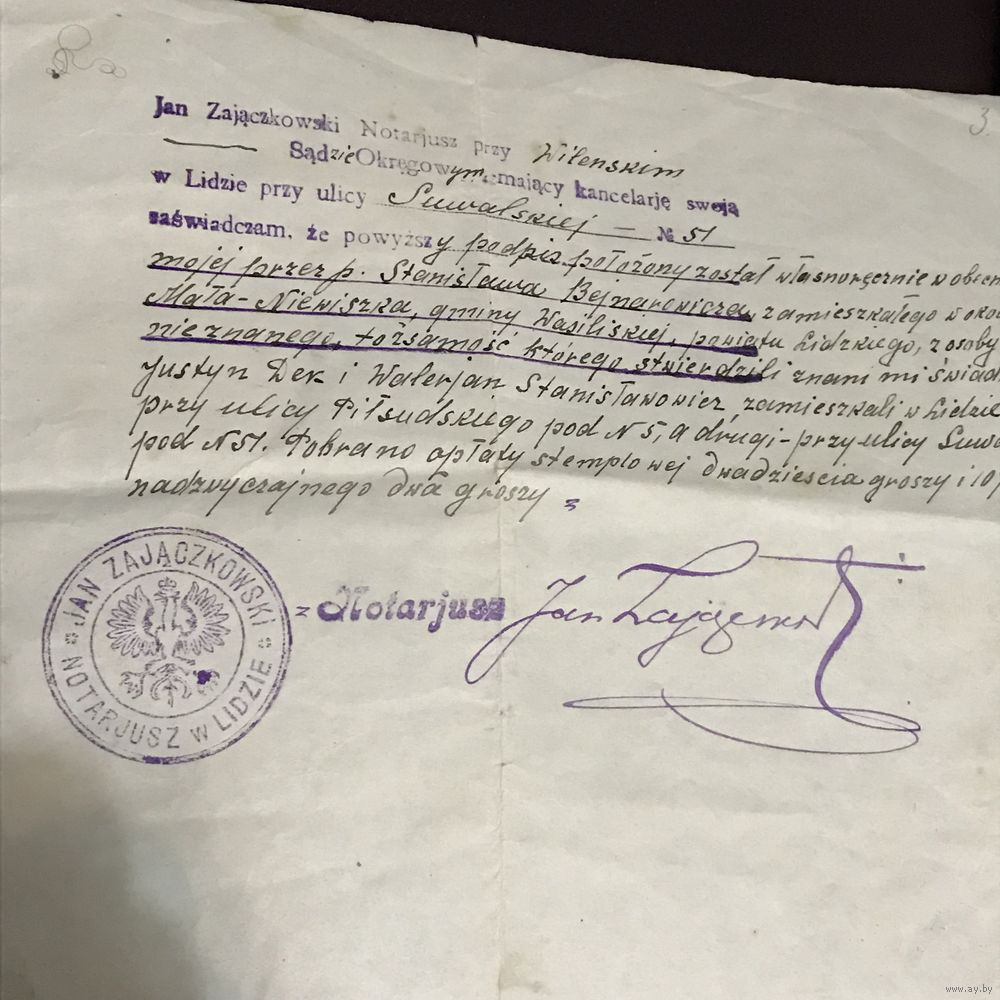 3.
Jan Zajączkowski Notarjusz przy Wileńskim
Sądzie Okręgowym mający kancelarję swoją
w Lidzie przy ulicy Suwalskiej — № 51
zaświadczam, że powyższy podpis położony został własnoręcznie w obecn
mojej przez p. Stanisława Bejnarowicza, zamieszkałego w oko
Mała-Niewiszka, gminy Wasiliskiej, powiatu Lidzkiego, z osoby
nieznanego, tożsamość którego stwierdzili znani mi świad
Justyn Dek i Walerjan Stanisławowicz, zamieszkali w Lidzie
przy ulicy Piłsudskiego pod N 5, a drugi - przy ulicy Suwa
pod N 51. Pobrano opłaty stemplowej dwadzieścia groszy i 10
nadzwyczajnego dwa groszy
JAN ZAJĄCZKOWSKI
NOTARJUSZ w LIDZIE
Notarjusz
Jan
www.ay.by